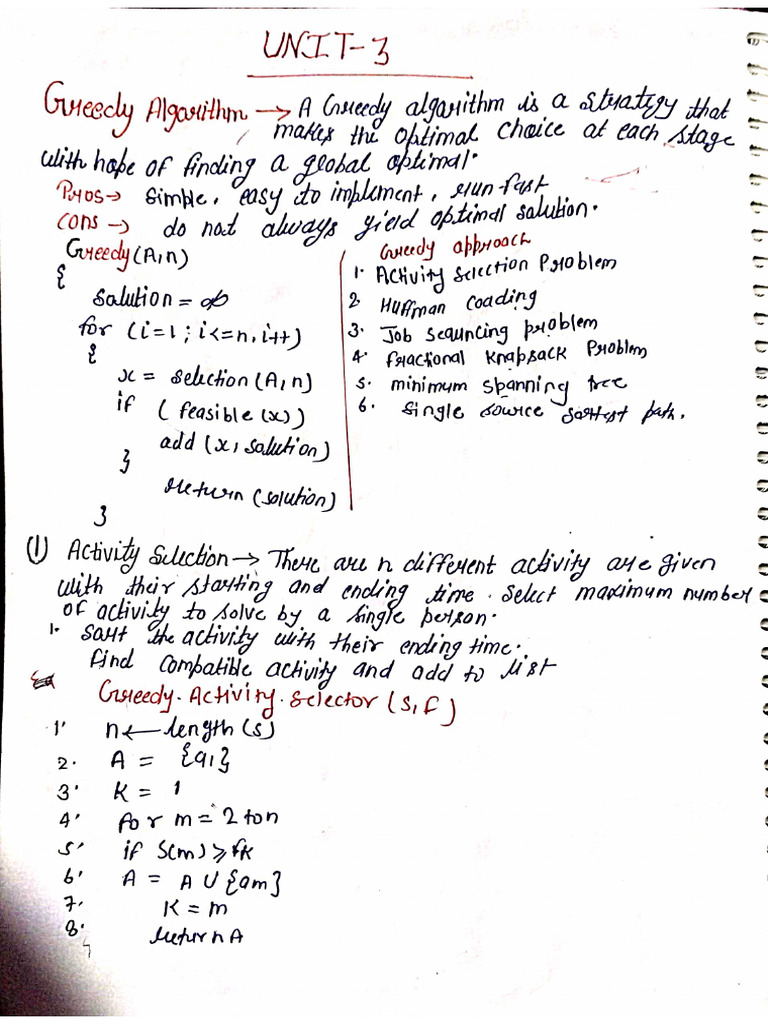 UNIT-3
Greedy Algorithm → A Greedy algorithm is a strategy that
makes the optimal choice at each stage
with hope of finding a global optimal.
Pros → simple, easy to implement, run fast
cons → do not always yield optimal solution.
Greedy (A,n)
{
solution = ∅
for (i=1; i<=n, i++)
{
x = selection (A,n)
if (feasible (x))
add (x, solution)
}
return (solution)
}
Greedy approach
1. Activity Selection Problem
2. Huffman coading
3. Job sequncing problem
4. fractional knapsack Problem
5. minimum spanning tree
6. single source sortest path.
① Activity Selection → There are n different activity are given
with their starting and ending time. select maximum number
of activity to solve by a single person.
1. sort the activity with their ending time.
find compatible activity and add to list
Greedy. Activity. selector (S, f)
1. n ← length (s)
2. A = {a1}
3. K = 1
4. for m = 2 to n
5. if S(m) ≥ fk
6. A = A U {am}
7. K = m
8. return A